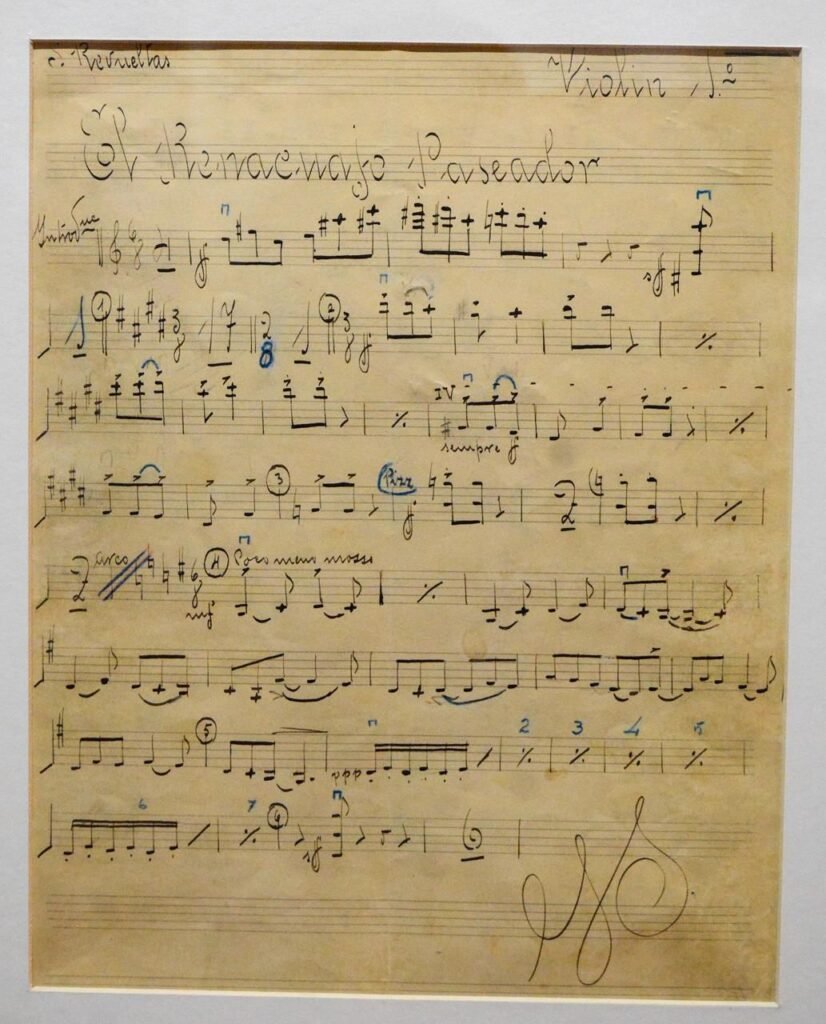 S. Revueltas
Violin 1.º
El Renacuajo Paseador
Introdᵘᶜ 6 8 2 f
sf
1 1 3 8 17 2 8 1 2 3 8 f
IV
sempre f
3 Pizz f 2
2 arco 6 8 4 Poco meno mosso
mf
5 ppp 2 3 4 5
6 7 6 sf 6